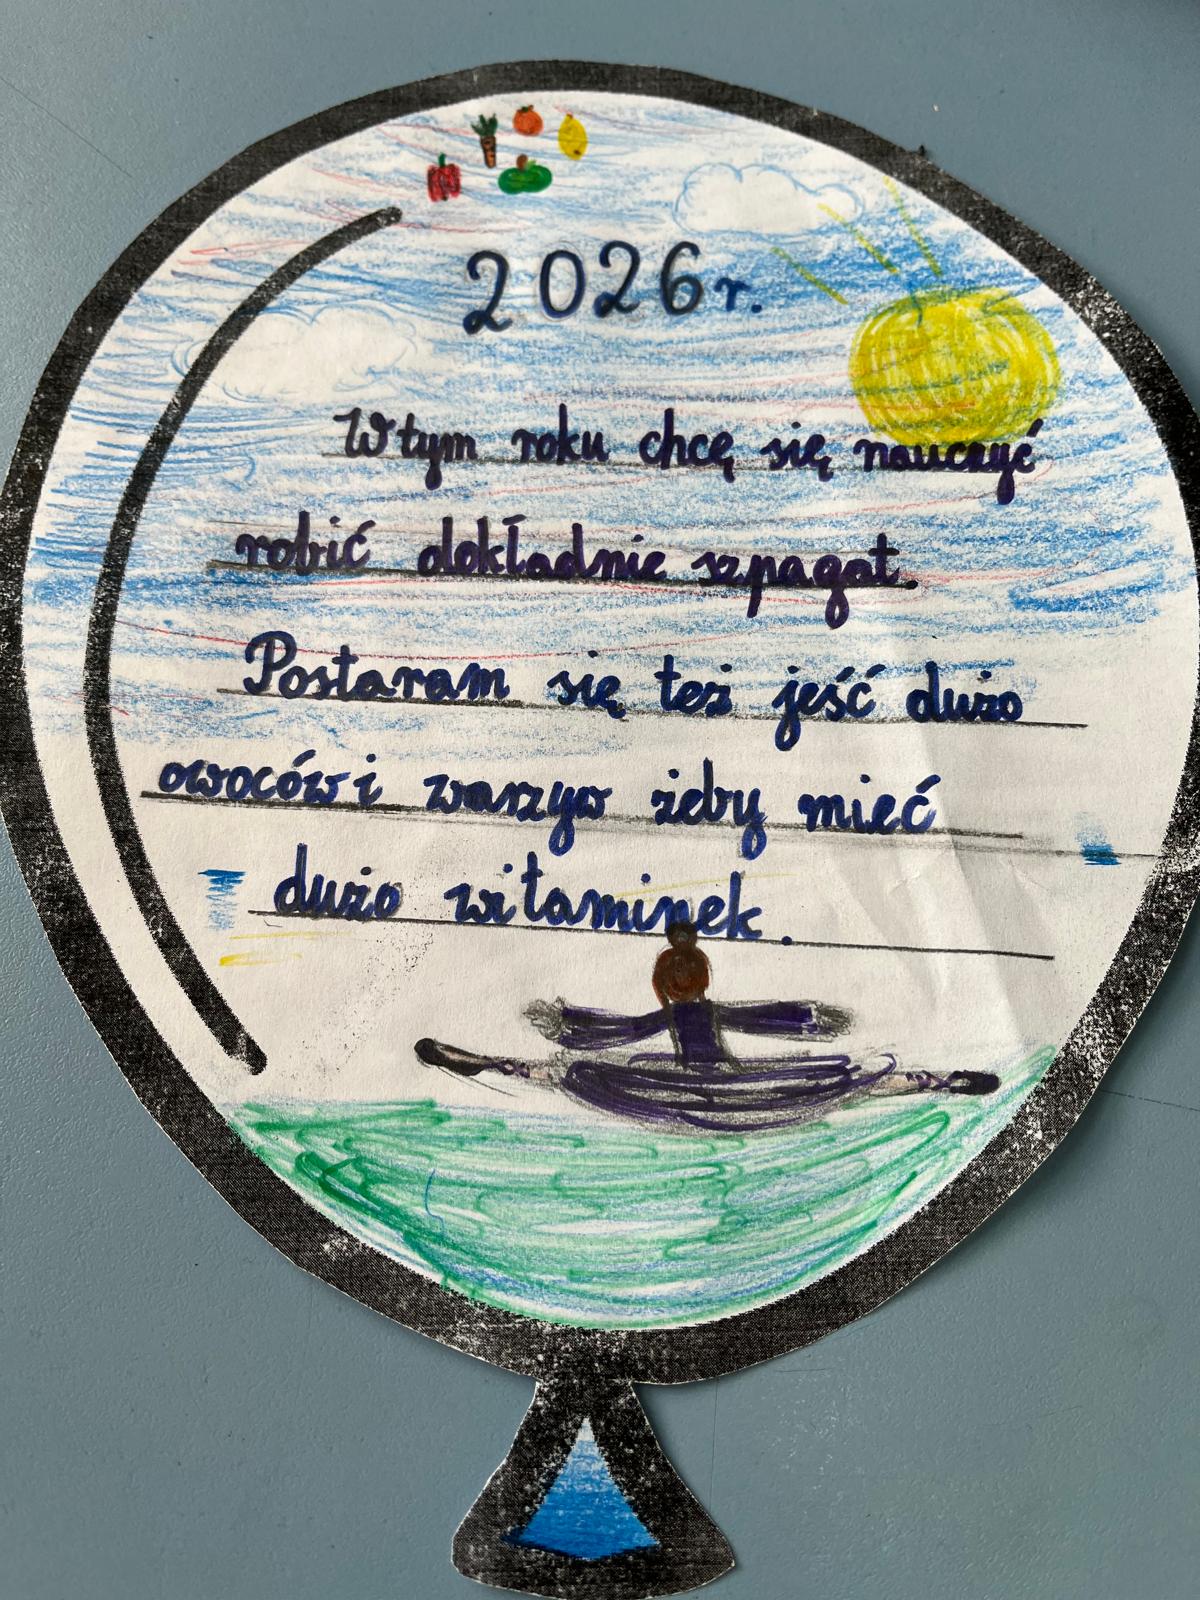 2026r.
W tym roku chcę się nauczyć
robić dokładnie szpagat.
Postaram się też jeść dużo
owoców i warzyw żeby mieć
dużo witaminek.